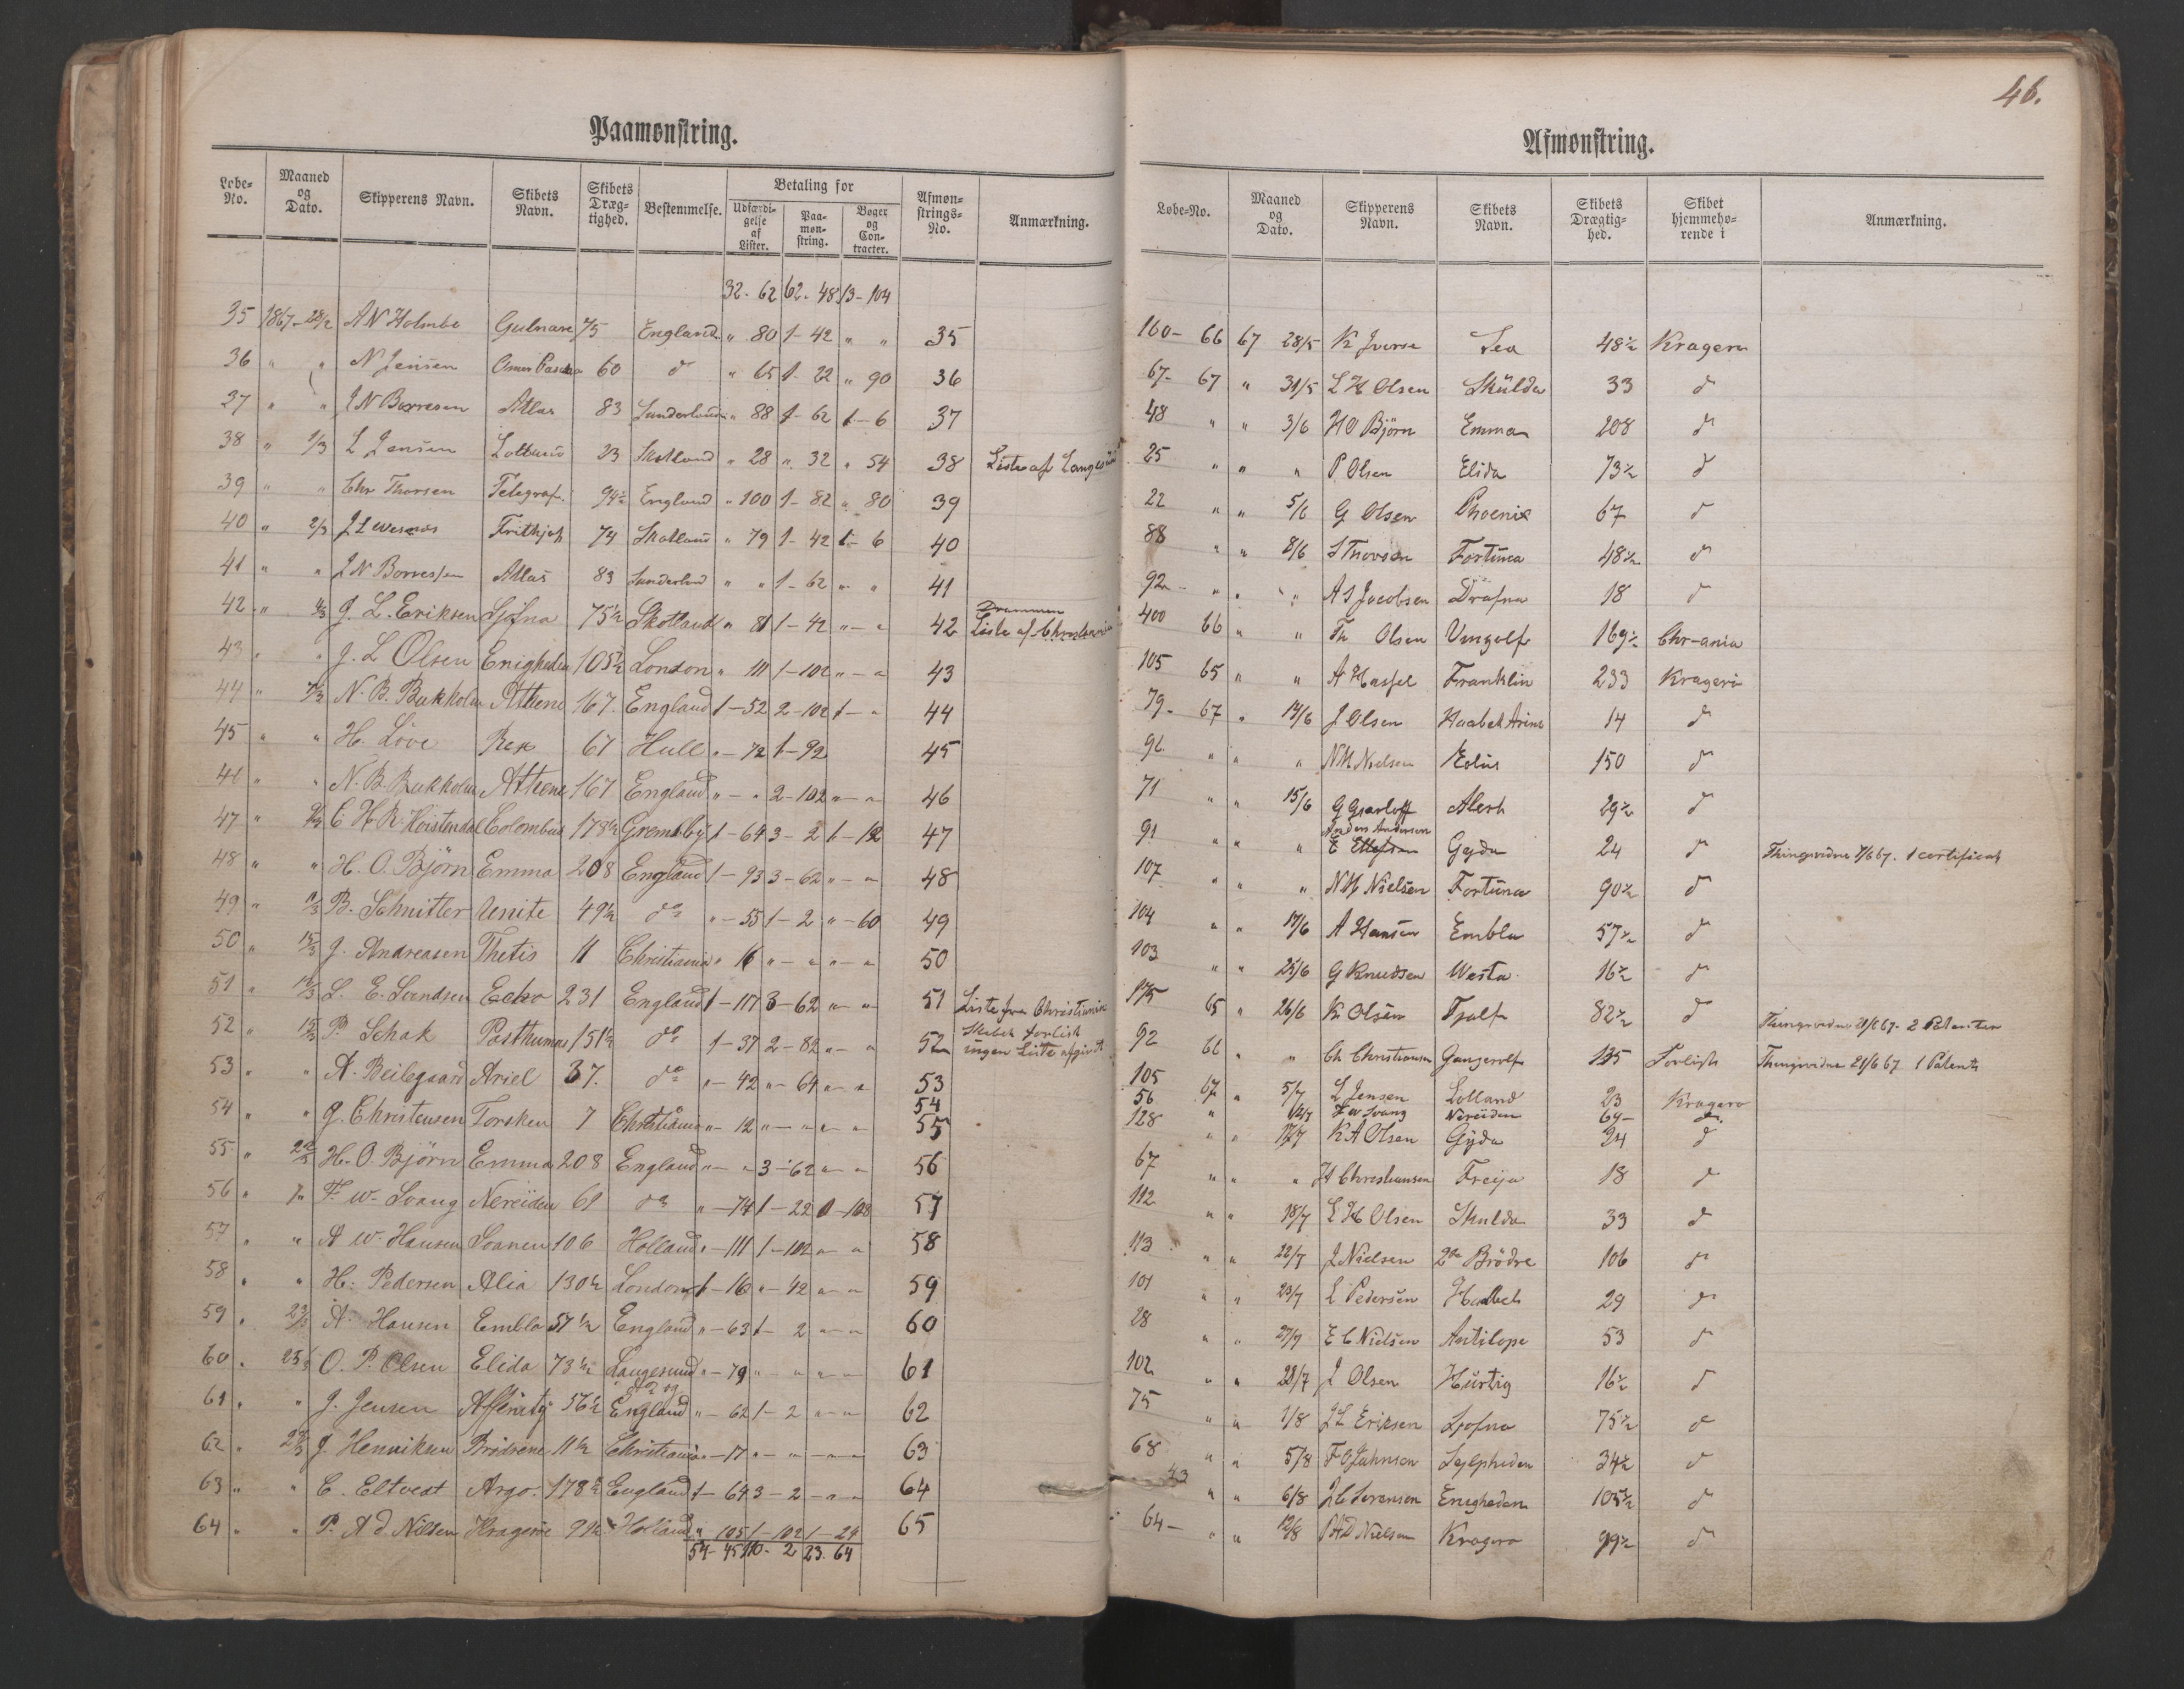 Paamønstring.
Løbe-No. Maaned og Dato. Skipperens Navn. Skibets Navn. Skibets Dræg-tighed. Bestemmelse. Betaling for Udfærdi-gelse af Lister. Paa-møn-string. Bøger og Con-tracter. Afmøn-strings-No. Anmærkning.
32. 62 62. 48 13- 104
35 1867- 28/2 A N Holmbe Gulnare 75 England " 80 1- 42 " " 35
36 " " N Jensen Omer Pascha 60 d " 65 1- 22 " 90 36
37 " " J N Borresen Atlas 83 Sunderland " 88 1- 62 1- 6 37
38 " 1/3 L Jensen Lolland 23 Skotland " 28 " 32 " 54 38 Liste af Langesund
39 " " Chr Thorsen Telegraf 94½ England " 100 1- 82 " 80 39
40 " 2/3 Frithjof 74 Skotland " 79 1- 42 1- 6 40
41 " " J N Borresen Atlas 83 Sunderland " " 1- 62 " " 41
Drammen
42 " J. L. Eriksen Sjofna 75½ Skotland " 81 1- 42 " - " 42 Liste af Christiania
43 " " J. L Olsen Enigheden 105½ London " 111 1-102 " - " 43
44 " N. B. Bukholm Athene 167 England 1-52 2-102 1- " 44
45 " " H. Löve Rex 67 Hull " -72 1-92 45
46 " " N. B. Bukholm Athene 167 England " - " 2-102 " - " 46
47 " C H R. Hoistendal Colombus 178½ Gremsby 1-64 3- 2 1-12 47
48 " " H. O. Björn Emma 208 England 1-93 3-62 " - " 48
49 " B. Schnitler Unite 49½ do " -55 1- 2 " -60 49
50 " 15/3 J. Andreasen Thetis 11 Christiania " 16 " - " " - " 50
51 " L. E. Svendsen Echo 231 England 1-117 3-62 " - " 51 Liste fra Christiania
52 " P. Schak Posthumus 151½ do 1-37 2-82 " - " 52 Skibet forlist ingen Liste afgivet
53 " " A. Beilegaard Ariel 37. do " -42 " -64 " - " 53
54
54 " " J. Christensen Torsken 7 Christiania " -12 " - " " - " 55
55 " H. O. Björn Emma 208 England " - " 3-62 " - " 56
56 " " F. W. Svang Nereiden 69 do " -74 1-22 57
57 " " A W. Hansen Svanen 106 Holland " -111 1-102 " " 58
58 " " H. Pedersen Alia 130½ London 1-16 " -42 " - " 59
59 " 23/3 A. Hansen Embla 57½ England " -63 1- 2 " - " 60
60 " 25/3 O. P. Olsen Elida 73½ Langesund " -79 " - " " - " 61
61 " " J. Jensen Affinity 56½ England " -62 1- 2 " - " 62
62 " J. Henriksen Brödrene 11½ Christiania " -17 " - " " - " 63
63 " " C. Eltvedt Argo. 178½ England 1-64 3- 2 " - " 64
64 " " P. A d. Nilsen Kragerö 99½ Holland " 105 1-102 1-24 65
54- 45 110- 2 23. 64
46.
Afmønstring.
Løbe-No. Maaned og Dato. Skipperens Navn. Skibets Navn. Skibets Drægtig-hed. Skibet hjemmehø-rende i Anmærkning.
160- 66 67 28/5 K Iverse Lea 48½ Kragerø
67- 67 " 31/5 L H Olsen Skulda 33 d
48 " " 3/6 H O Björn Emma 208 d
25 " " " P. Olsen Elida 73½ d
22 " " 5/6 G Olsen Phoenix 67 d
88 " " 8/6 S Thorsen Fortuna 48½ d
92 " " " A S Jacobsen Drafna 18 d
400 66 " " Th Olsen Vingolf 169½ Chr-ania
105 65 " " A Hassel Franklin 233 Kragerö
79- 67 " 14/6 J Olsen Haabet Arine 14 d
" " " N M Nielsen Eolus 150 d
71 " " 15/6 G Gjerloff Alert 29½ d
Anders Andersen
91 " " " E Ellefsen Gyda 24 d Thingsvidne 7/6 67. 1 certificat
107 " " " N M Nielsen Fortuna 90½ d
104 " " 17/6 A Hansen Embla 57½ d
103 " " 25/6 G Knudsen Westa 16½ d
175 65 " 26/6 K. Olsen Tjalfe 82½ d Thingsvidne 21/6 67- 2 Patenter
92 66 " " Ch Christiansen Gangerolf 135 Forlist Thingsvidne 21/6 67 1 Patent
105 67 " 5/7 L Jensen Lolland 23 Kragerø
56 " F W Svang Nereiden 69 d
128 " " 17/7 K A Olsen Gyda 24 d
67 " " " H Christiansen Freija 18 d
112 " " 18/7 L H Olsen Skulda 33 d
113 " " 22/7 J Nielsen 2de Brödre 106 d
101 " " 23/7 L Pedersen Haabet 29 d
28 " " 27/7 E C Nielsen Antilope 53 d
102 " " 28/7 J Olsen Hurtig 16½ d
75 " " 1/8 J L Eriksen Sjofna 75½ d
68 " " 5/8 F O Johnsen Sylpheden 34½ d
43 " " 6/8 J C Sorensen Enigheden 105½ d
64- " " 12/8 P A D Nielsen Kragerø 99½ d